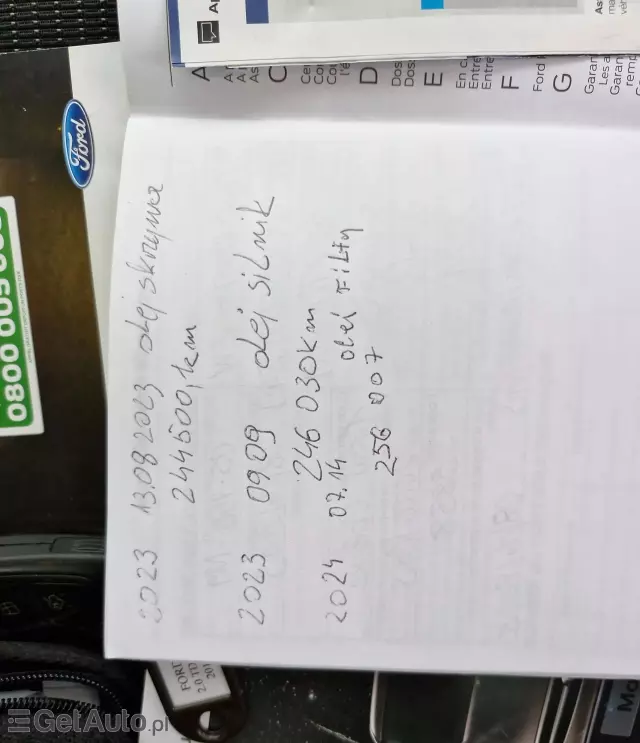 2023 13.08 2023 olej skrzynia
244500,km
2023 0909 olej silnik
246 030km
2024 07.14 olei Filtry
256 007
Ford
0800 005
A
C
D
Dos
Dos
E
En c
Entre
Entre
F
Ford
G
Garan
Les a
Garan
remp
As
FORD
2.0 TD
201
Mo
GetAuto.pl